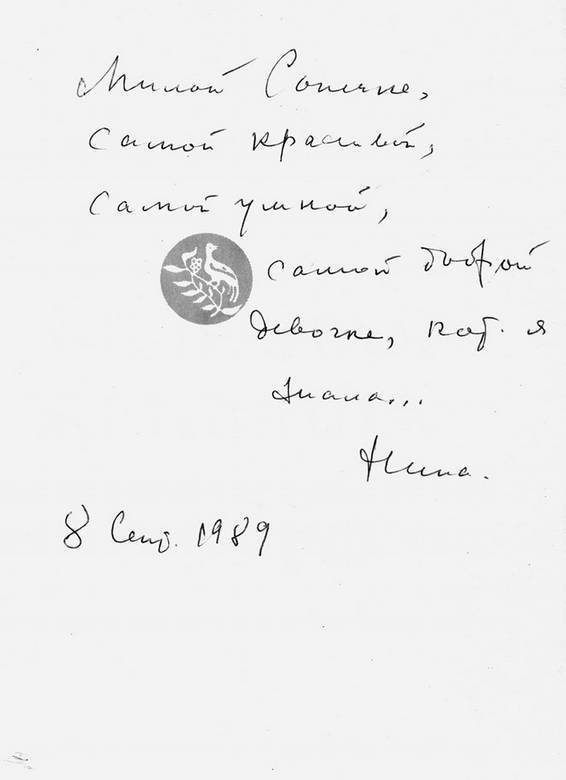 Милой Сонечке,
самой красивой,
самой умной,
самой доброй
девочке, кот. я
знала...
Нина.
8 Сент. 1989